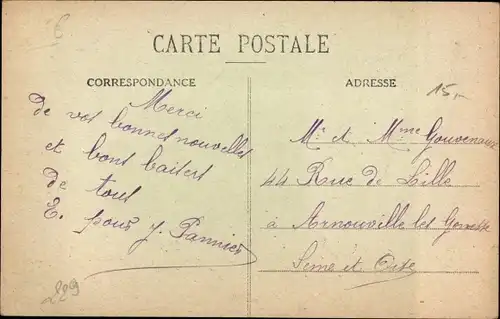 CARTE POSTALE
CORRESPONDANCE
Merci
de vos bonnes nouvelles
et bons baisers
de tous
E. pour J. Pannier
ADRESSE
15,-
Mr et Mme
44 Rue de Lille
à Arnouville les Gonesse
Seine et Oise
229